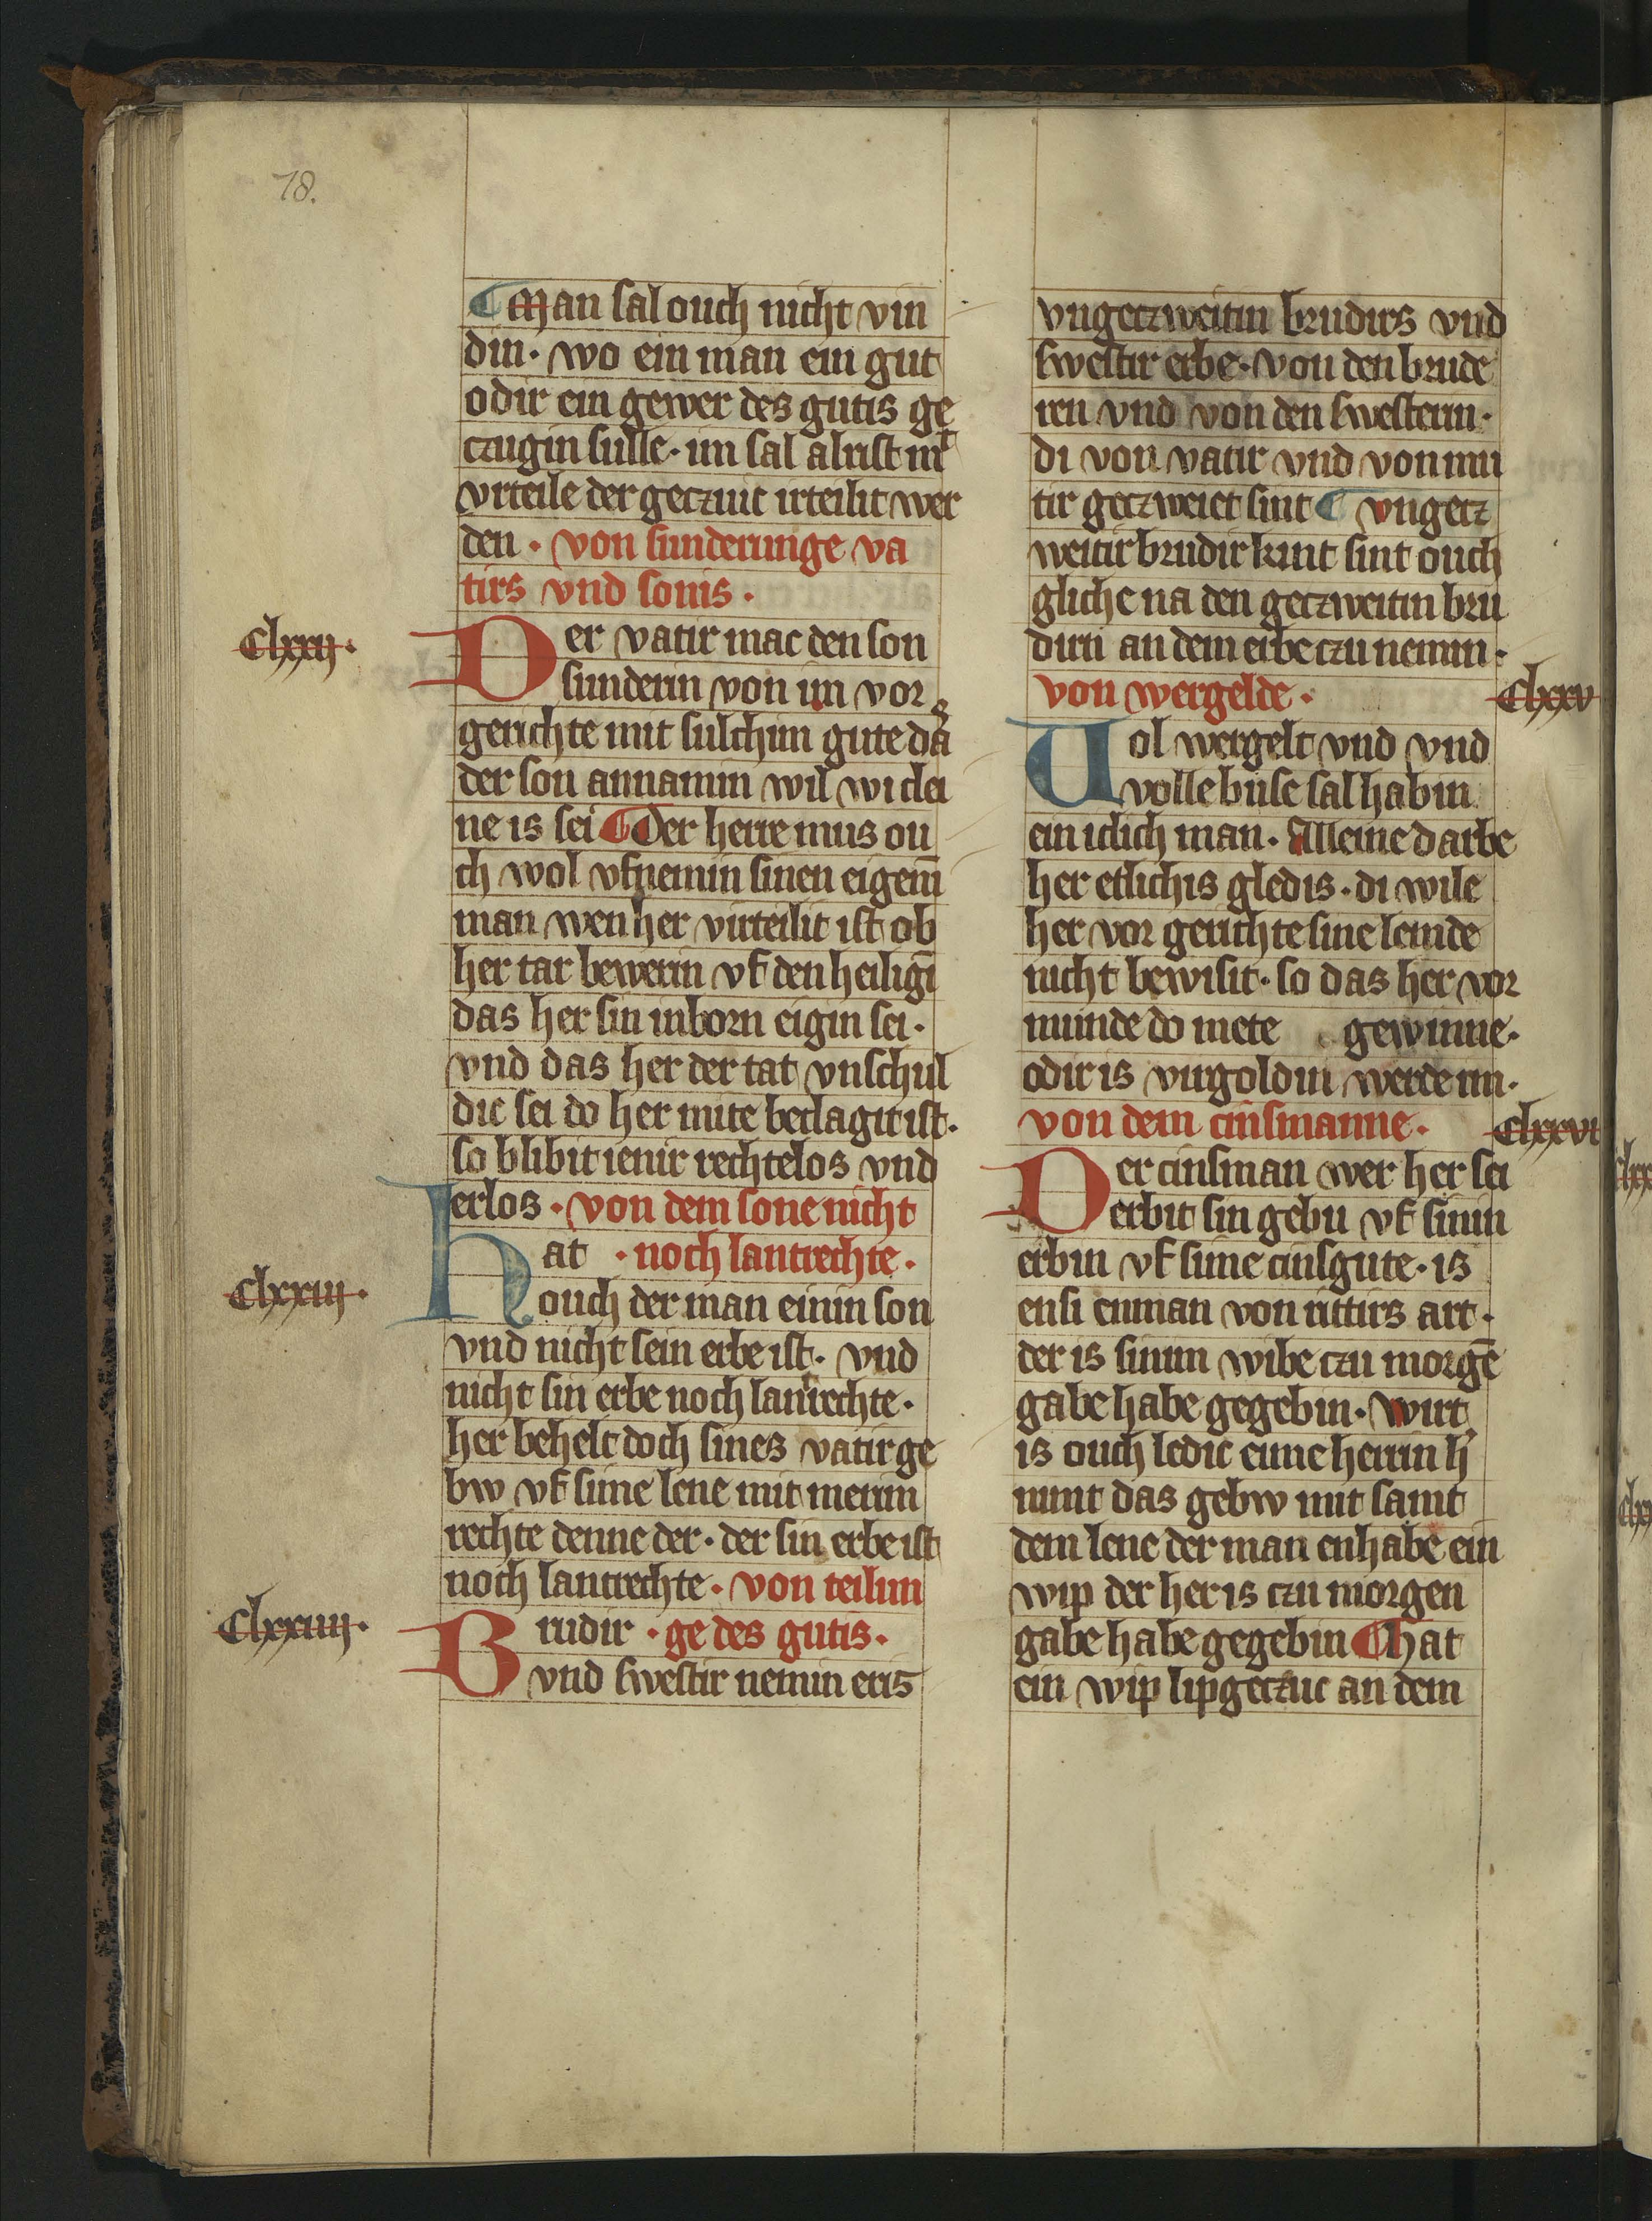 78.
¶ Man sal ouch nicht vin
din· wo ein man ein gut
odir ein gewer des gutis ge
czugin sulle· im sal alrist mt
vrteile der geczuic irteilit wer
den · von sunderunge va
tirs vnd sonis ·
Clxxij·
Der vatir mac den son
sunderin von im vor
gerichte mit sulchim gute da
der son annamin wil wi clei
ne is sei ¶ Der herre mus ou
ch wol vfnemin sinen eigenī
man wen her virteilit ist ob
her tar bewerin vf den heiligī
das her sin inborn eigin sei·
vnd das her der tat vnschul
dic sei do her mite beclagit ist·
so blibit ienir rechtelos vnd
erlos · von dem sone nicht
Clxxiij·
Hat · noch lantrechte·
ouch der man einin son
vnd nicht sein erbe ist· vnd
nicht sin erbe noch lantrechte·
her behelt doch sines vatir ge
bw vf sime lene mit merim
rechte denne der· der sin erbe ist
noch lantrechte· von teilun
Clxxiiij·
Brudir · ge des gutis·
vnd swestir nemin eris
vngeczweitin brudirs vnd
swestir erbe· von den brude
ren vnd von den swesterin·
di von vatir vnd von mu
tir geczweiet sint ¶ vngecz
weitir brudir kint sint ouch
gliche na den geczweitin bru
dirn an dem erbe czu nemin·
von wergelde· Clxxv
Vol wergelt vnd vnd
volle buse sal habin
ein iclich man· Alleine darbe
her etlichis gledis· di wile
her vor gerichte sine lemde
nicht bewisit· so das her vor
munde do mete gewinne·
odir is virgoldin werde im·
von dem cinsmanne· Clxxvi
Der cinsman wer her sei
erbit sin gebu vf sinin
erbin vf sime cinsgute· is
ensi einman von rittirs art·
der is sinim wibe czu morgē
gabe habe gegebin· Wirt
is ouch ledic eime herrin h'
nimt das gebw mit samt
dem lene der man enhabe ein
wip der her is czu morgen
gabe habe gegebin ¶ Hat
ein wip lipgeczuc an dem